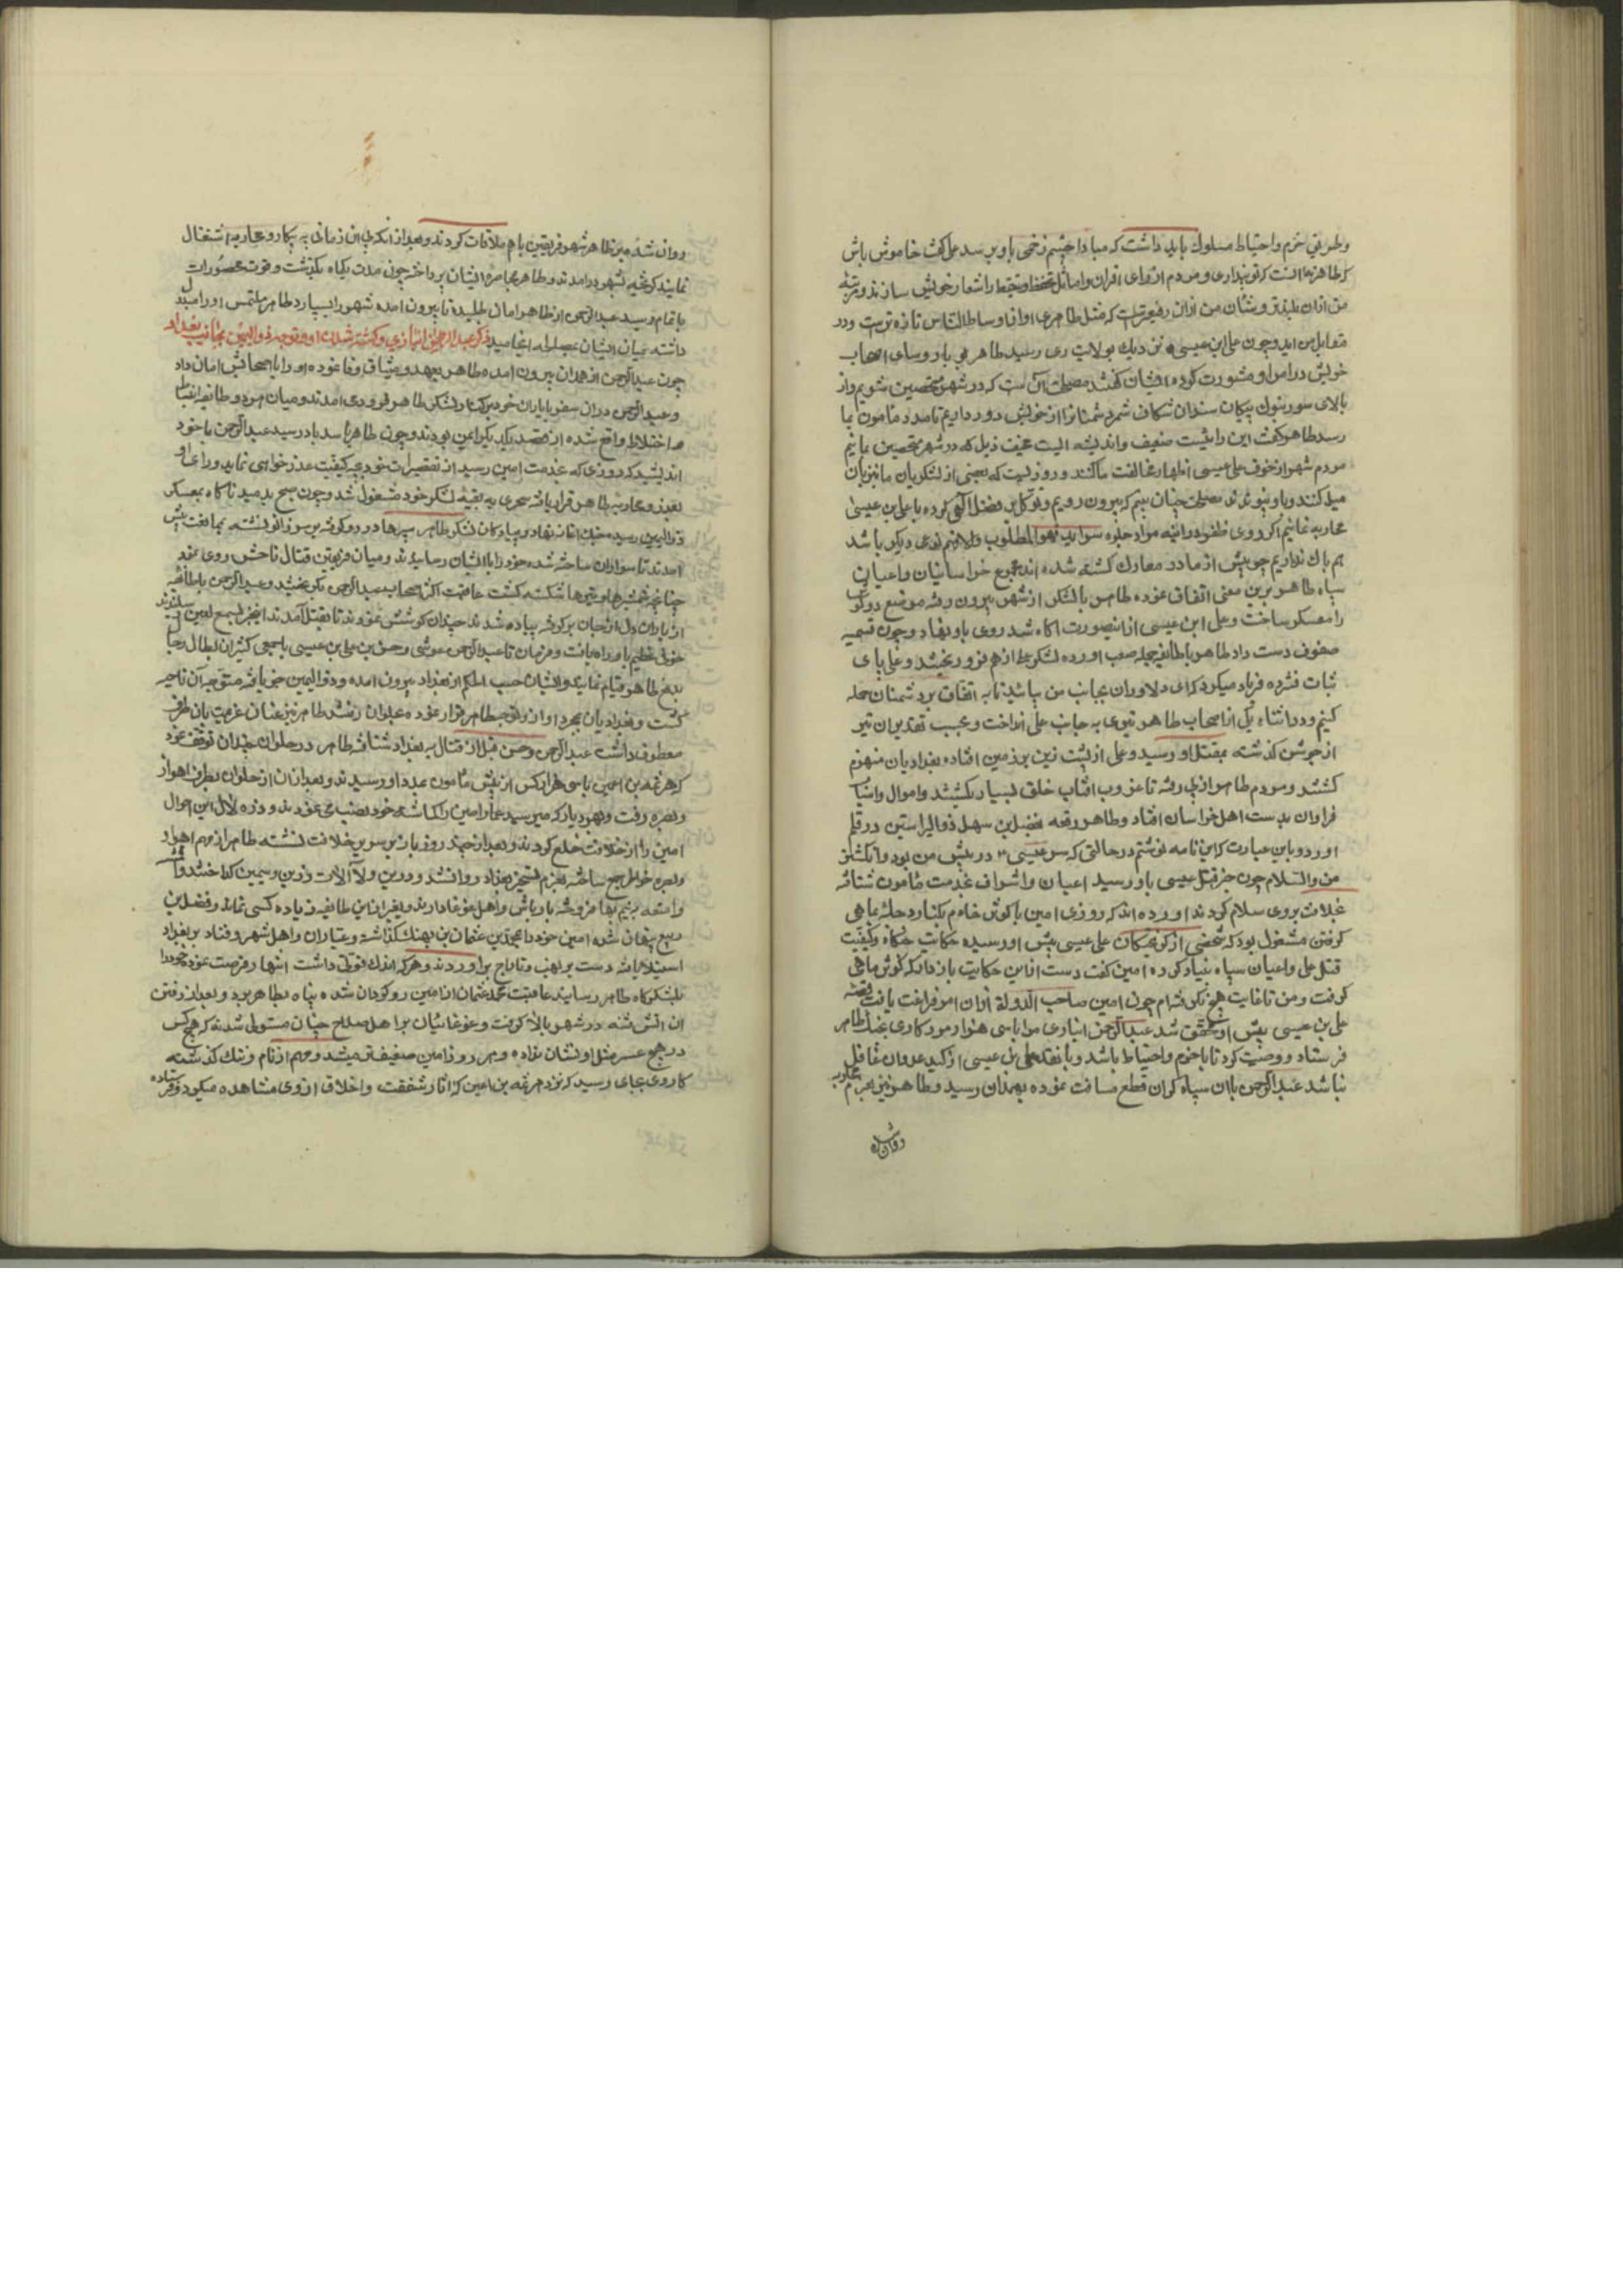 وطریق حزم واحتیاط مسلوك باید داشت که مبادا چشم زخمی باو برسد علی گفت خاموش باش
که طاهر نه انست که تو پنداری ومردم از برای اقران وامثال تحفظ وتیقظ را شعار خویش سازند ومرتبه
من ازان بلندتر وشان من ازان رفیعتر است که مثل طاهری او را واساط الناس تازه تربیت ودر
مقابل من اید وچون علی ابن عیسی نزدیك بولایت ری رسید طاهر نیز باروسای اصحاب
خویش در امر او مشورت کرده ایشان گفتند مصلحت آن است که در شهر متحصن شویم واز
بالای سور بنوك پیکان سندان شکاف شر دشمنانرا از خویش دور داریم تا مدد مأمون بما
رسد طاهر گفت این رائیست ضعیف واندیشه ایست سخیف زیرا که در شهر متحصن مانیم
مردم شهر از خوف علی عیسی اظهار مخالفت ما کنند ودور نیست که بعضی از لشکریان ما نیز بان
میل کنند وباو پیوندند مصلحت چنان بینم که بیرون رویم وتوکل بر فضل الهی کرده با علی بن عیسی
محاربه نمائیم اگر روی ظفر در اینه مراد جلوه نماید فهو المطلوب والا اگر نوعی دیگر باشد
هم باك نداریم چو پیش از ما در معارك کشته شده اند مجموع خراسانیان واعیان
سپاه طاهر برین معنی اتفاق نموده طاهر با لشکر از شهر بیرون رفته موضع
را معسکر ساخت وعلی ابن عیسی از انصورت اکاه شد روی باو نهاد وچون تسمیه
صفوف دست داد طاهر با طایفه حمله صعب اورده لشکر علی از هم فرو ریختند وعلی پای
ثبات فشرده فریاد میکرد که ای دلاوران بجانب من بیائید تا به اتفاق بر دشمنان حمله
کنیم ودر اثناء یکی از اصحاب طاهر تیری به جانب علی انداخت وبحسب تقدیر ان تیر
از جوشن کذشته بمقتل او رسید وعلی از پشت زین بر زمین افتاده بغدادیان منهزم
کشتند ومردم طاهر از پی رفته تا غروب افتاب خلق بسیار بکشتند واموال واشیا
فراوان بدست اهل خراسان افتاد وطاهر رقعه بفضل بن سهل ذوالریاستین در قلم
اورد وباین عبارت که این نامه نوشتم در حالتی که سر عیسی در پیش من بود وانکشتر
من والسلام چون خبر قتل عیسی باو رسید اعیان واشراف بخدمت مامون شتافته
بخلافت بروی سلام کردند اورده اند که روزی امین با کوثر خادم بکنار دجله بماهی
گرفتن مشغول بود که شخصی از گریختکان علی عیسی پیش او رسیده حکایت جنکاه وکیفیت
قتل علی واعیان سپاه بنیاد کرده امین گفت دست از این حکایت باز دار که کوثر ماهی
گرفت ومن تا غایت هیچ نگرفته ام چون امین صاحب الدوله ازان امر فراغت یافت وقصه
علی بن عیسی پیش او محقق شد عبدالرحمن انباری را با سی هزار مرد کاری بجنك طاهر
فرستاد ووصیت کرد تا باحزم واحتیاط باشد وبا نقد علی بن عیسی از کید عدوان غافل
نباشد عبدالرحمن باان سپاه گران قطع مسافت نموده بهمدان رسید وطاهر نیز بعزم محاربه
روان شده
روان شده بر ظاهر شهر فریقین باهم ملاقات کردند وبعد از انکه این زمانی به پیکار ومحاربه اشتغال
نمایند گریخته بشهر درامدند وطاهر بمحاصره ایشان پرداخت چون مدت یکماه بگذشت وقوت محصورات
باتمام رسید عبدالرحمن از طاهر امان طلبیده تا بیرون امده شهر را بسپارد طاهر ملتمس او را مبذول
داشته میان ایشان بمصلحه انجامید ذکر عبدالرحمن انباری وکشته شدن او وتوجه ذوالیمینین بجانب بغداد
چون عبدالرحمن از همدان بیرون امده طاهر بعهد ومیثاق وفا نموده او را با اصحابش امان داد
وعبدالرحمن دران سفر بایاران خود بر کنار لشکر طاهر فرود می امدند ومیان هر دو طایفه انبساط
واختلاط واقع شده از قصد یکدیگر ایمن بودند وچون طاهر باسدباد رسید عبدالرحمن باخود
اندیشید که روزی که بخدمت امین رسید از تقصیرات خود بچه کیفیت عذرخواهی نماید ورای او
بغدر ومحاربه طاهر قرار یافته سحری به بقیه لشکر خود مشغول شد وچون صبح بدمید ناکاه بمعسکر
ذوالیمینین رسیده جنك اغاز نهاد وپیادکان لشکر طاهر سپرها در رو گرفته بر سر زانو نشسته بمدافعت پیش
امدند تا سواران ساخته شده خود را باایشان رسانیدند ومیان فریقین قتال فاحش روی نمود
چنانچه شمشیرها ونیزها شکسته گشت عاقبت اکثر اصحاب عبدالرحمن بگریختند وعبدالرحمن باطایفه
از یاران دل از جان برگرفته پیاده شدند چندان کوشش نمودند تا بقتل امدند اینخبر بسمع امین رسانیدند
خوفی عظیم باو راه یافت وفرمان تا عبدالله حرشی وحسن بن علی بن عیسی باجمعی کثیر از ابطال رجال
بدفع طاهر قیام نمایند وایشان حسب الحکم از بغداد بیرون امده وذوالیمینین خبر یافته متوجه آن ناحیه
گشت وبغدادیان بمجرد اوازه توجه طاهر فرار نموده بحلوان رفتند طاهر نیز عنان عزیمت بان طرف
معطوف داشت عبدالرحمن وحسن قبل از قتال به بغداد شتافته طاهر در حلوان چندان توقف نمود
که هرثمه بن اعین باسی هزار کس از پیش مأمون بمدد او رسیدند وبعد ازان از حلوان بطرف اهواز
وبصره رفت وبهر دیار که میرسید عمال امین را گماشته خود نصب می نمودند ودر خلال این احوال
امین را از خلافت خلع کردند وبعد از چند روز باز بر سریر خلافت نشسته طاهر از مهم اهواز
وبصره خواطر جمع ساخته بعزم تسخیر بغداد روان شد ودرین ولا آلات زرین وسیمین گداختند
وامتعه به نیم بها فروخته باوباش واهل غوغا دارند وبغیر از این طایفه زیاده کسی نماند وفضل بن
ربیع پنهان شده امین خود را بمحمد بن عثمان بن نهیك گذاشته وعیاران واهل شهر وفساد بر بغداد
استیلا یافته دست بر نهب وتاراج براوردند وهر که اندك قوتی داشت انتهاز فرصت نموده خود را
بلشکرگاه طاهر رسانید عاقبت محمد عثمان از امین روگردان شده پناه بطاهر برد وبعد از رفتن
ان اتش فتنه در شهر بالا گرفت وغوغائیان بر اهل صلاح چنان مستولی شدند که هیچ کس
در هیچ عصر مثل او نشان نداده وهر روز امین ضعیفتر میشد ومهم از نام وننك گذشته
کار وی بجای رسید که نزد هرثمه بن اعین که اثار شفقت واخلاق از وی مشاهده میکرد فرستاده